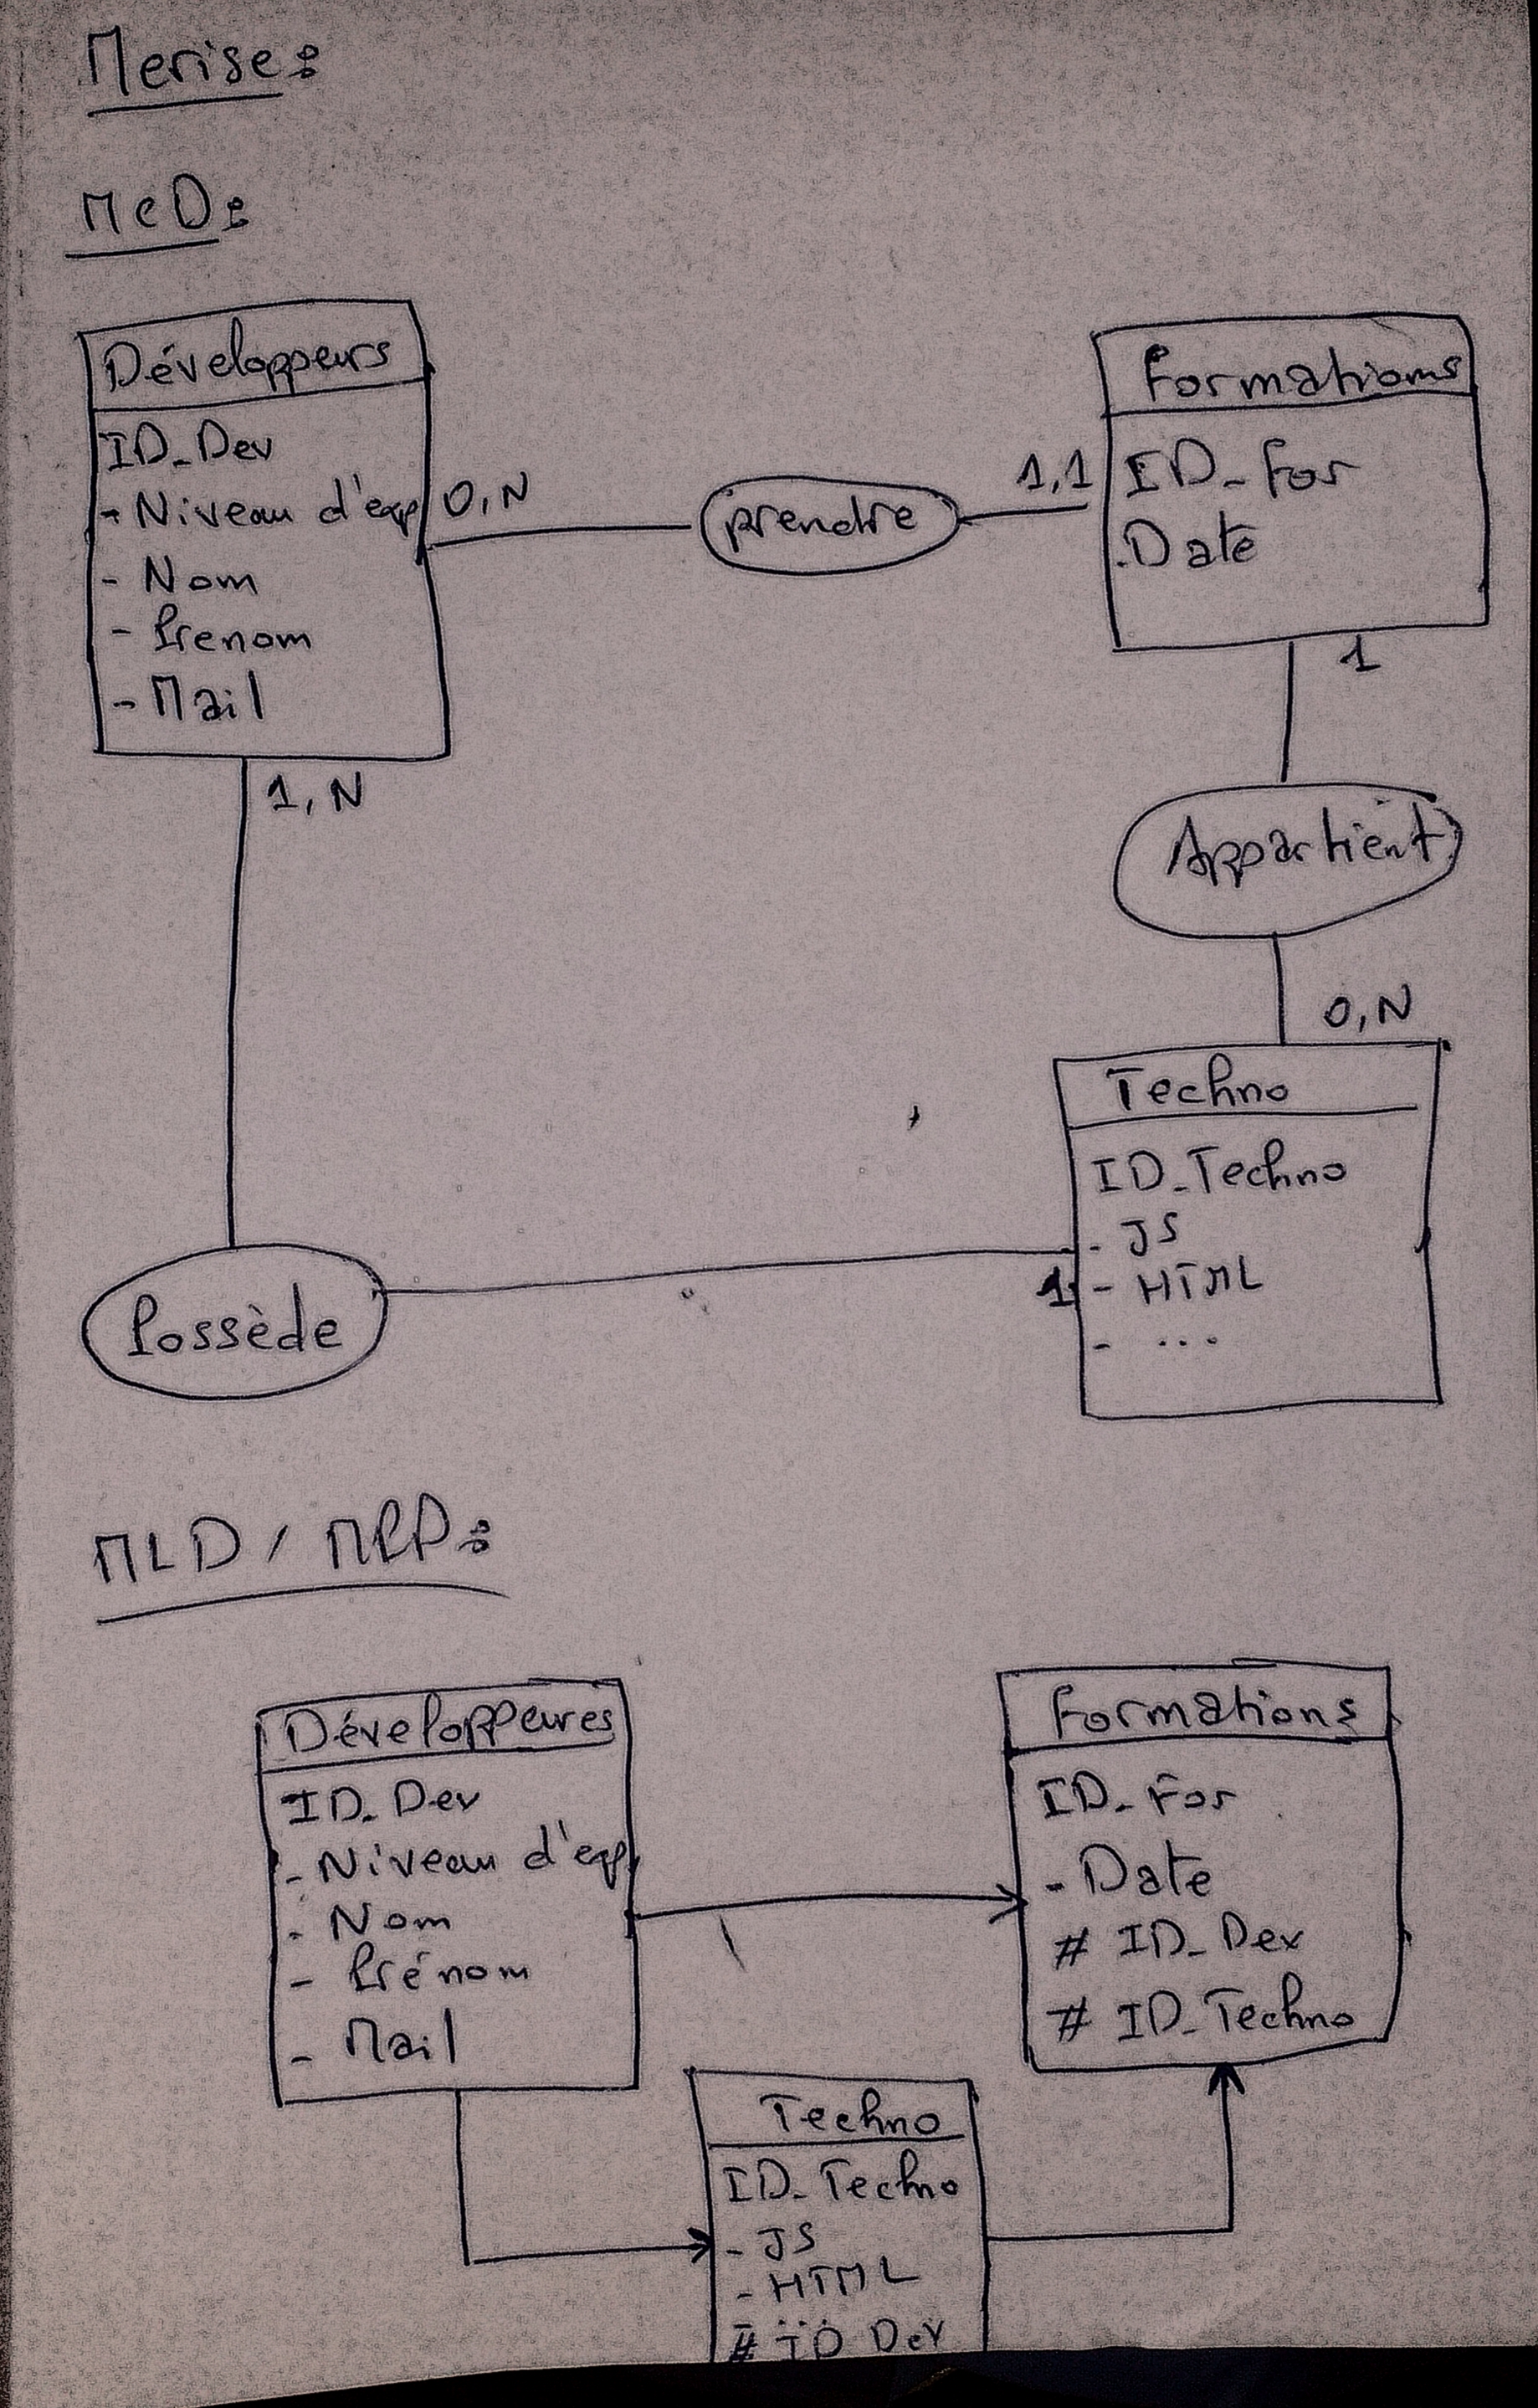 Merise :
MCD :
Développeurs
ID_Dev
- Niveau d'exp
- Nom
- Prenom
- Mail
0,N
prendre
1,1
Formations
ID_For
.Date
1
1,N
Appartient
0,N
Techno
ID_Techno
- JS
- HTML
- ...
1
Possède
MLD / MPD :
Développeures
ID_Dev
- Niveau d'exp
- Nom
- Prénom
- Mail
Formations
ID_For
- Date
# ID_Dev
# ID_Techno
Techno
ID_Techno
- JS
- HTML
- ...
# ID_Dev